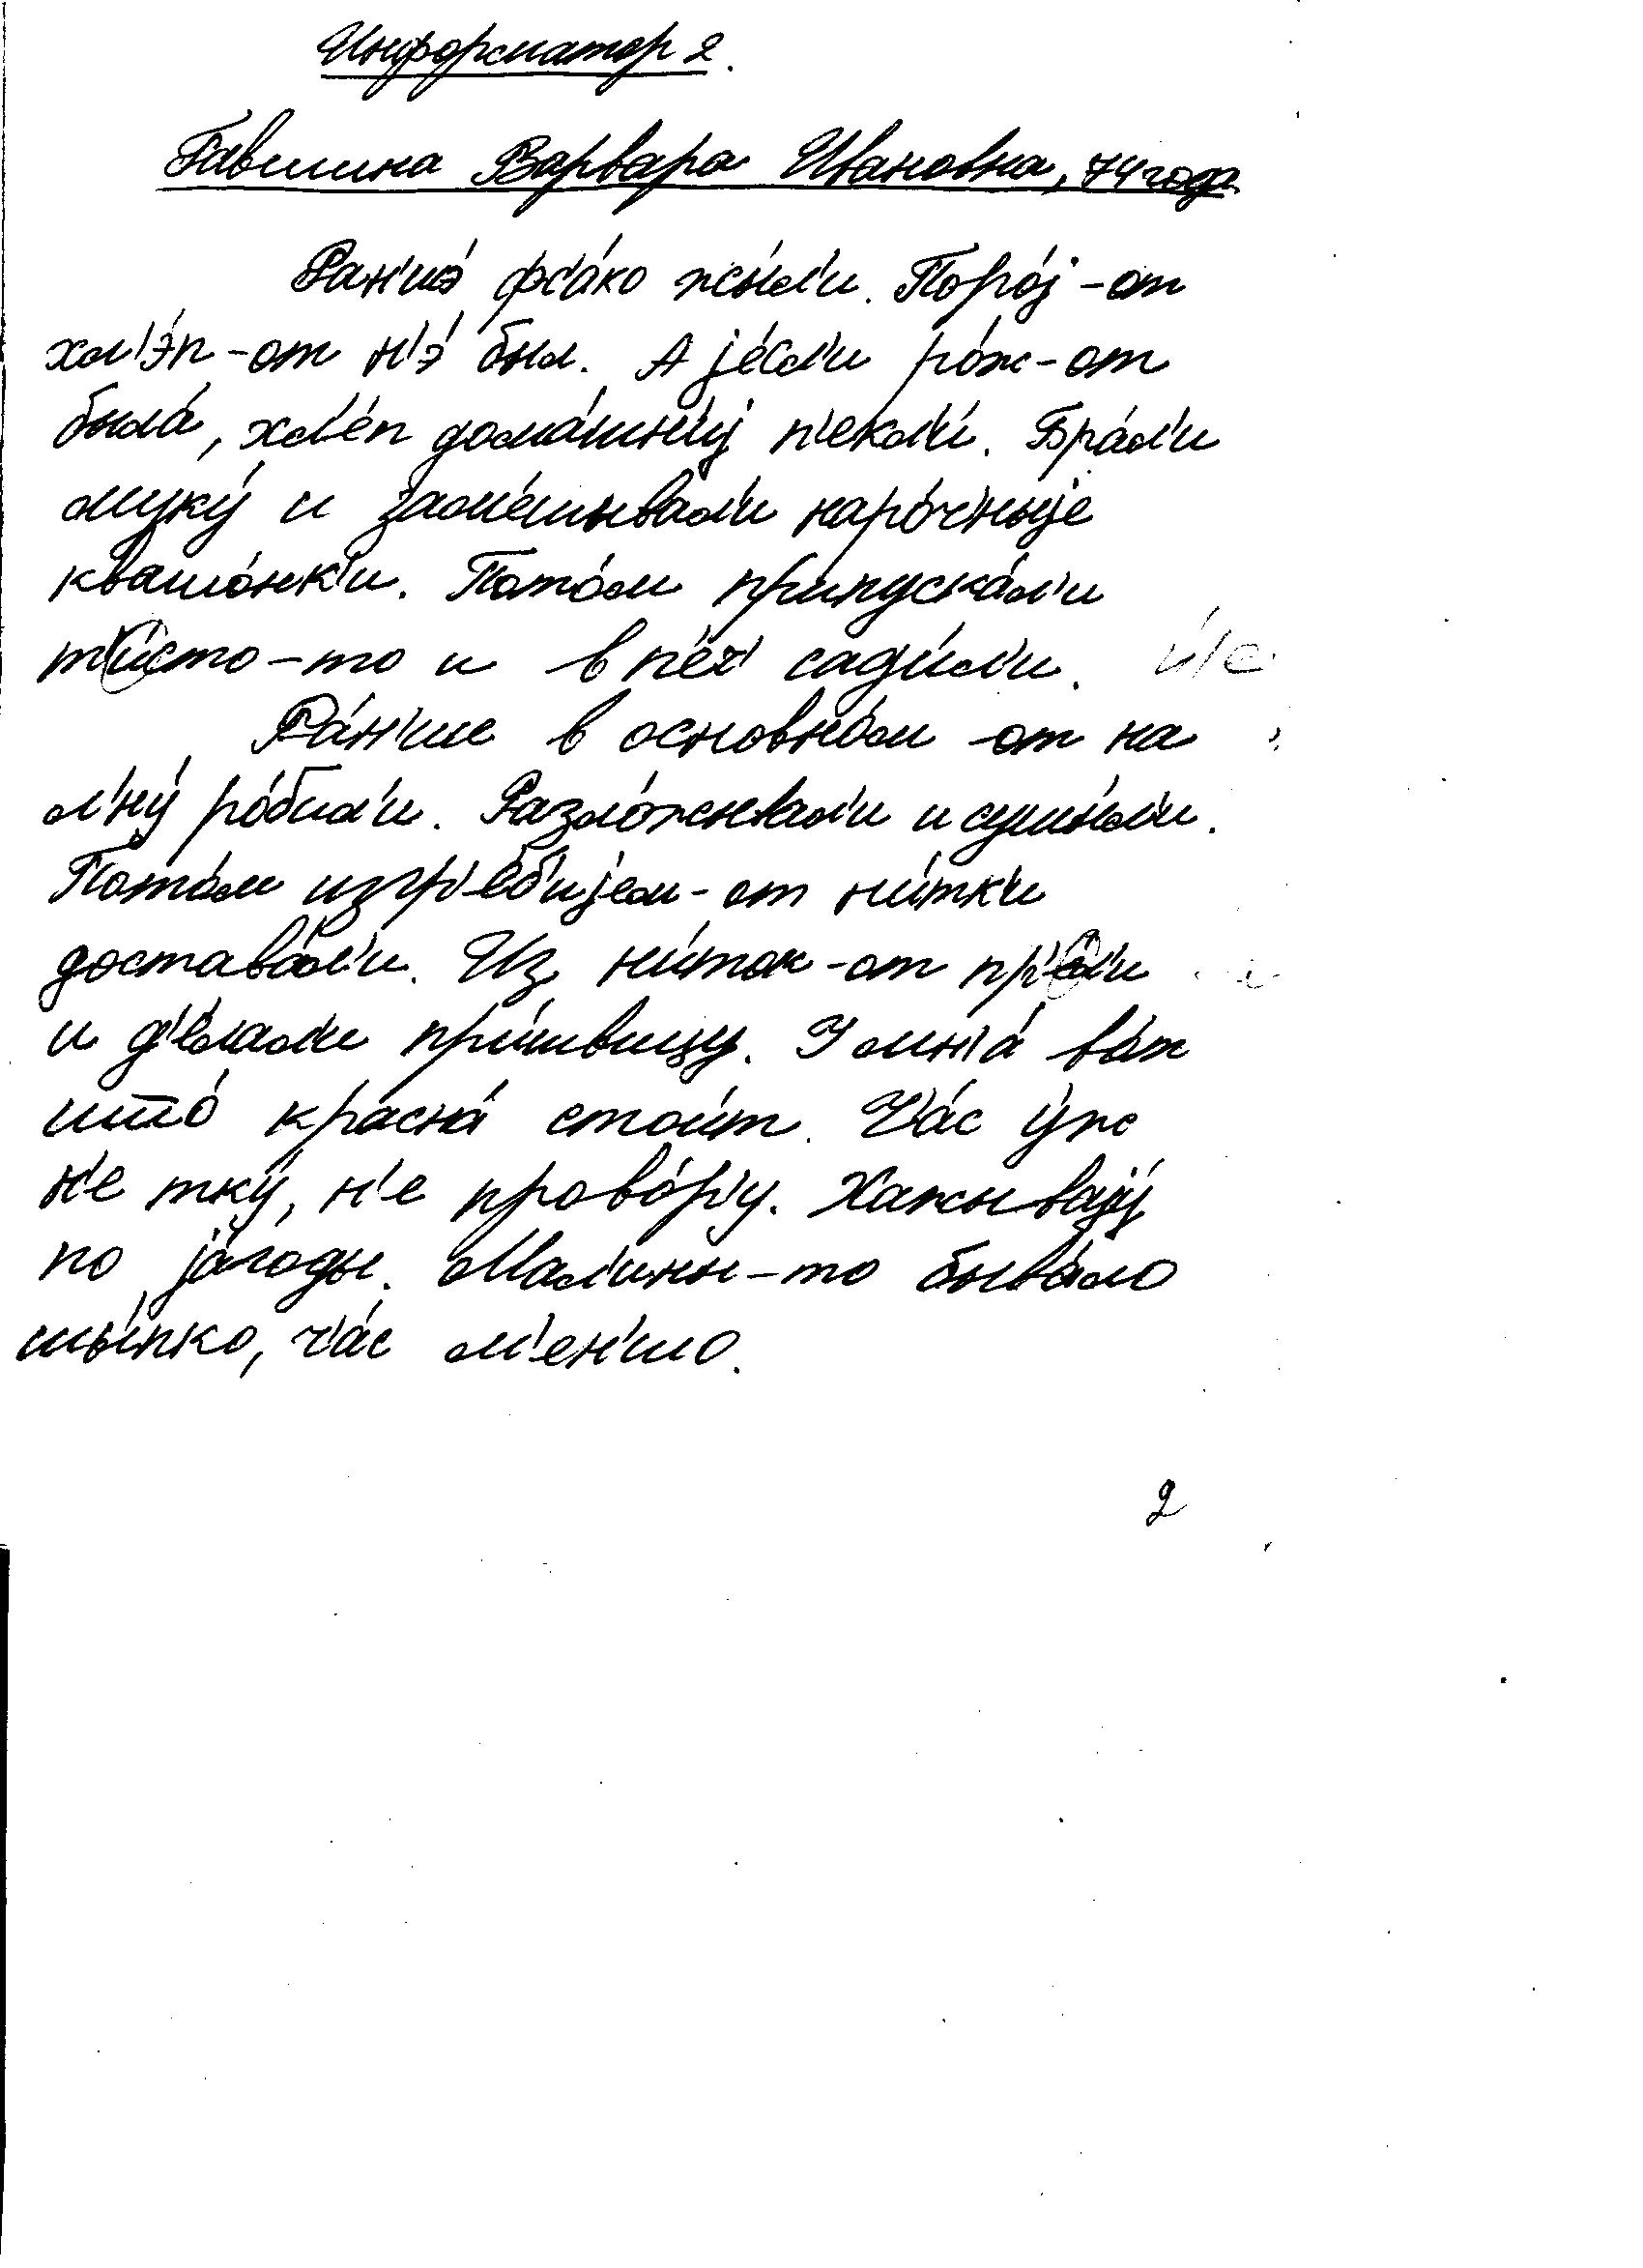 Информатор 2.
Гавшина Варвара Ивановна, 74 года
Ран'шэ́ фс'а́ко жы́л'и. Порој-от
хл'э́п-от н'э́ был. А је́сл'и ро́ж-от
была́, хл'е́п дома́шн'иј п'екл'и́. Бра́л'и
муку́ и зам'е́шывал'и наро́чныје
квашо́нк'и. Пото́м припуска́л'и
т'и́сто-то и в п'е́ч' сад'и́л'и. и́/е
Ра́н'ше в основно́м -от на
л'ну́ ро́бил'и. Разло́жывал'и и сушы́л'и.
Пото́м изгр'е́б'ијем-от ни́тк'и
достава́л'и. Из ни́ток-от пр'а́л'и
и д'е́лал'и при́швицу. У мн'а́ во́т
што́ красна́ стои́т. Ч'а́с у́ж
н'е тку́, н'е прово́р'у. Хажывају́
по ја́годы. Мал'и́ны-то быва́ло
шы́пко, ч'а́с м'ен'шо.
2